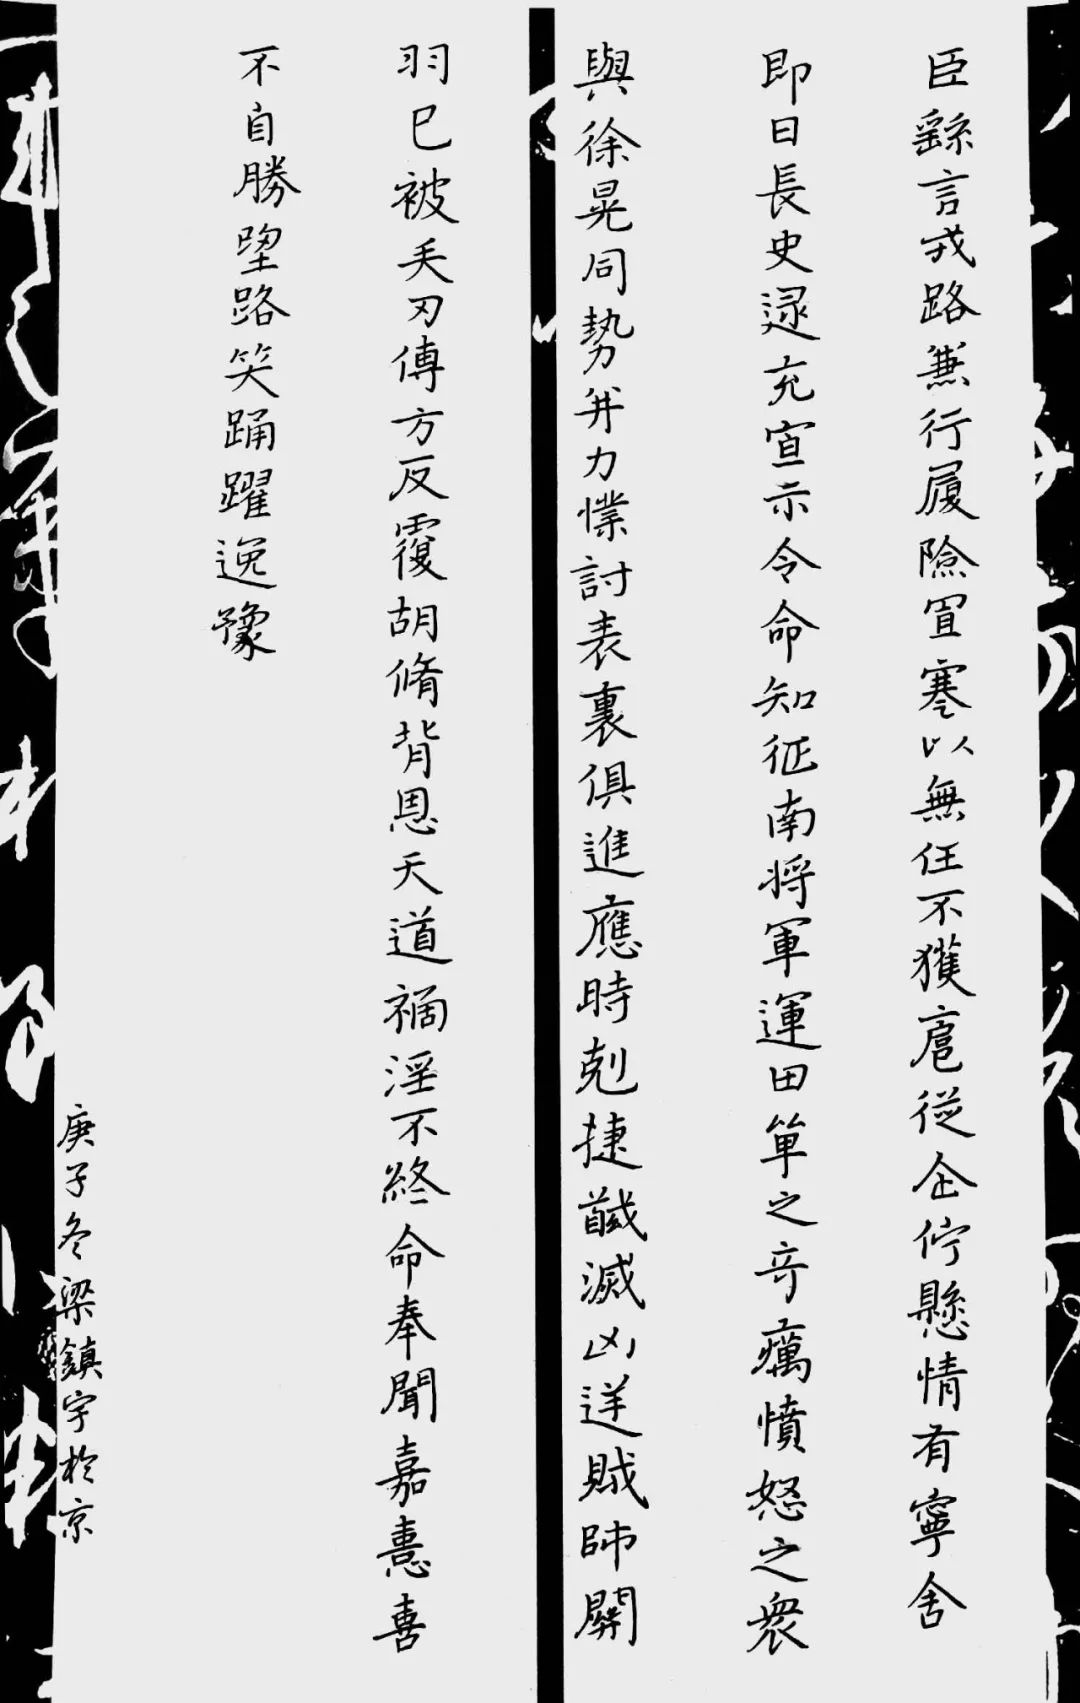 臣繇言戎路兼行履險冒寒以無任不獲扈從企佇懸情有寧舍
即日長史逯充宣示令命知征南將軍運田單之奇厲憤怒之衆
與徐晃同勢并力㩧討表裏俱進應時剋捷馘滅凶逆賊帥關
羽已被矢刃傅方反覆胡脩背恩天道禍淫不終命奉聞嘉憙喜
不自勝望路笑踊躍逸豫
庚子冬梁鎮宇於京